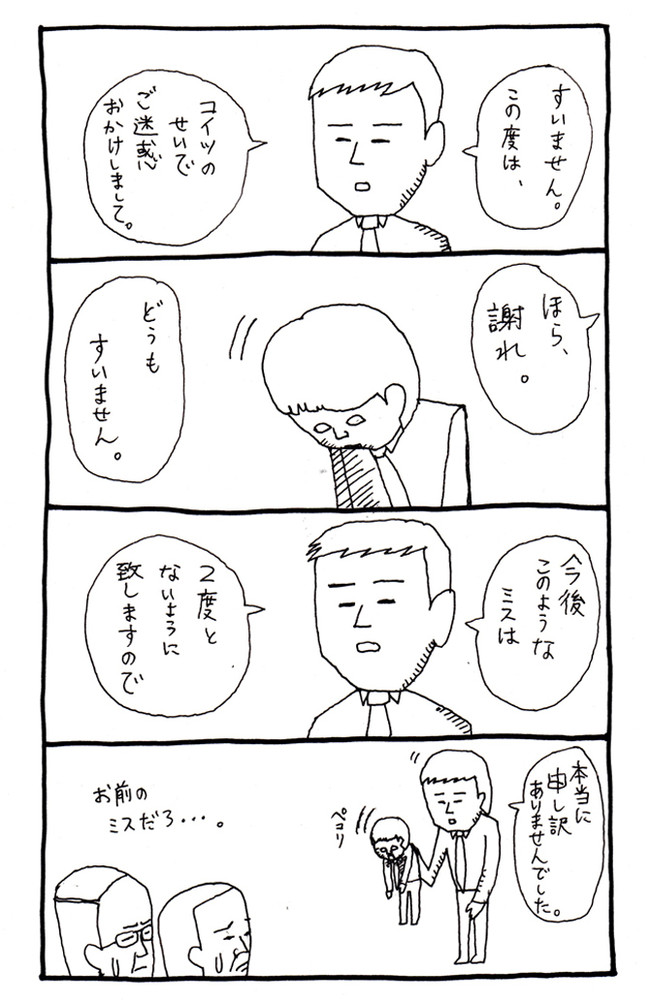 すいません。
この度は、
コイツの
せいで
ご迷惑
おかけしまして。
ほら、
謝れ。
どうも
すいません。
今後
このような
ミスは
2度と
ないように
致しますので
本当に
申し訳
ありませんでした。
ペコリ
お前の
ミスだろ・・・。